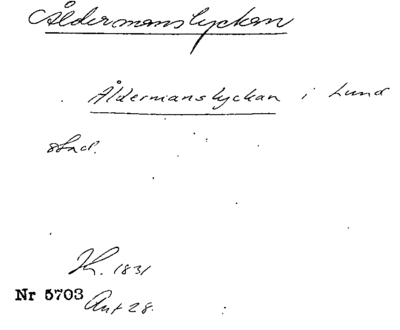 Åldermanslyckan
Åldermanslyckan i Lund
stad.
K. 1831
Nr 5703 Ant 28.